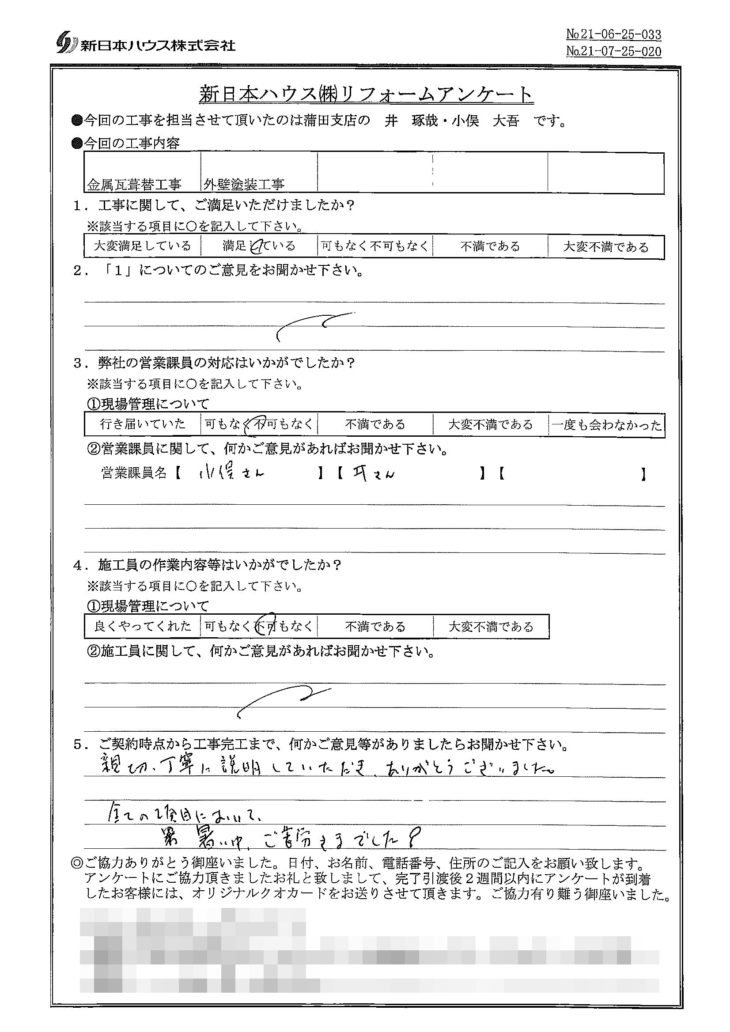 新日本ハウス株式会社
№21-06-25-033
№21-07-25-020
新日本ハウス㈱リフォームアンケート
●今回の工事を担当させて頂いたのは蒲田支店の 井 琢哉・小俣 大吾 です。
●今回の工事内容
金属瓦葺替工事 外壁塗装工事
1．工事に関して、ご満足いただけましたか？
※該当する項目に○を記入して下さい。
大変満足している 満足している 可もなく不可もなく 不満である 大変不満である
2．「1」についてのご意見をお聞かせ下さい。
3．弊社の営業課員の対応はいかがでしたか？
※該当する項目に○を記入して下さい。
①現場管理について
行き届いていた 可もなく不可もなく 不満である 大変不満である 一度も会わなかった
②営業課員に関して、何かご意見があればお聞かせ下さい。
営業課員名【 小俣さん 】【 井さん 】【 】
4．施工員の作業内容等はいかがでしたか？
※該当する項目に○を記入して下さい。
①現場管理について
良くやってくれた 可もなく不可もなく 不満である 大変不満である
②施工員に関して、何かご意見があればお聞かせ下さい。
5．ご契約時点から工事完工まで、何かご意見等がありましたらお聞かせ下さい。
親切、丁寧に説明していただき、ありがとうございました。
全ての項目において、
暑い中、ご苦労さまでした！
◎ご協力ありがとう御座いました。日付、お名前、電話番号、住所のご記入をお願い致します。
アンケートにご協力頂きましたお礼と致しまして、完了引渡後２週間以内にアンケートが到着
したお客様には、オリジナルクオカードをお送りさせて頂きます。ご協力有り難う御座いました。